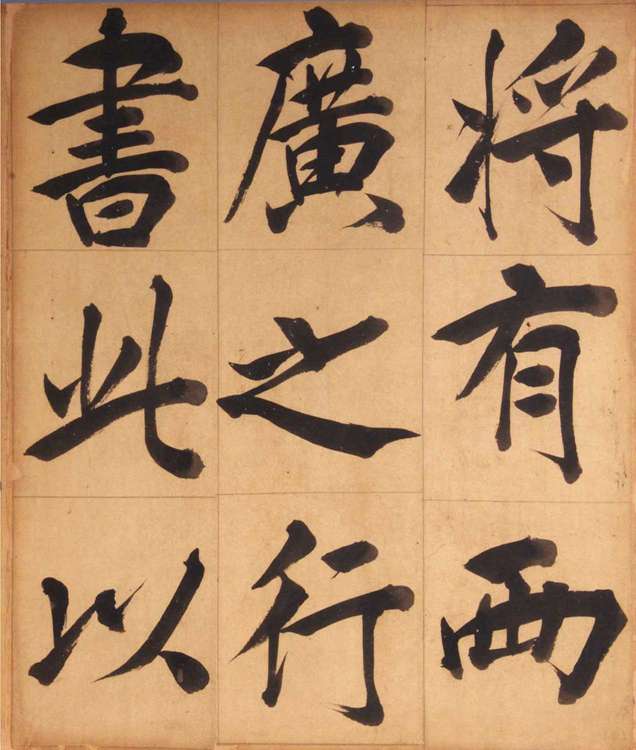 将有西
廣之行
書此以